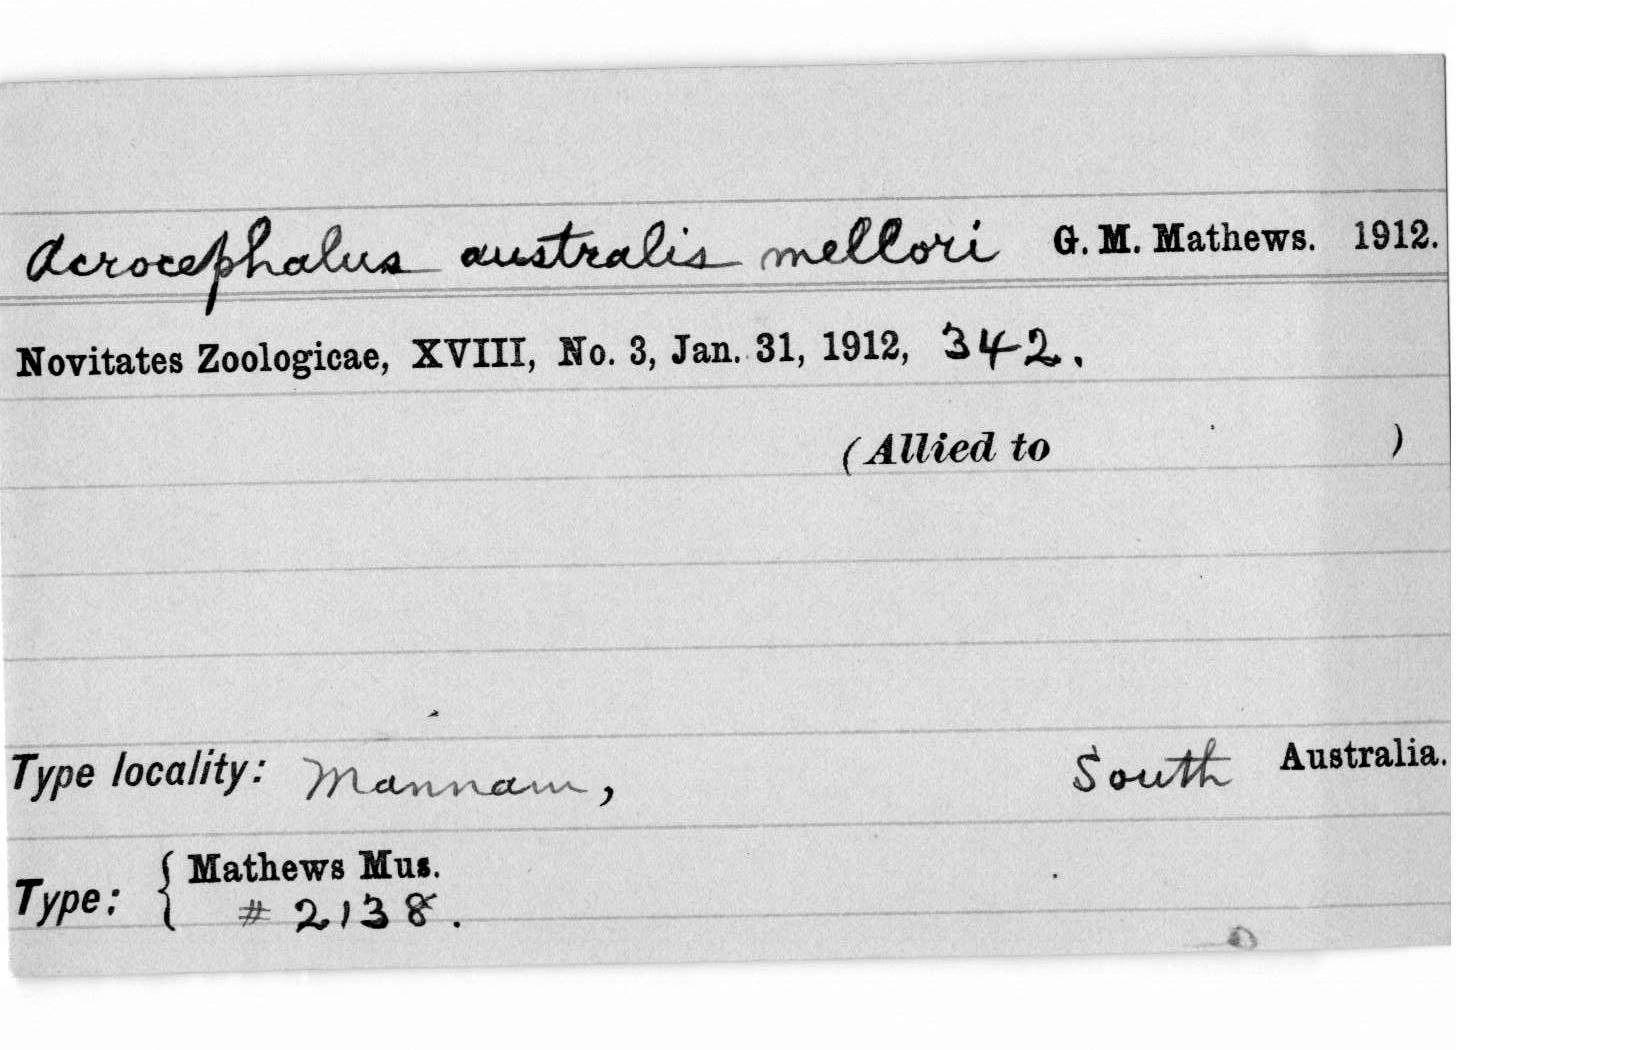 Acrocephalus australis mellori G. M. Mathews. 1912.
Novitates Zoologicae, XVIII, No. 3, Jan. 31, 1912, 342.
(Allied to )
Type locality: Mannam, South Australia.
Type: { Mathews Mus.
# 2138.